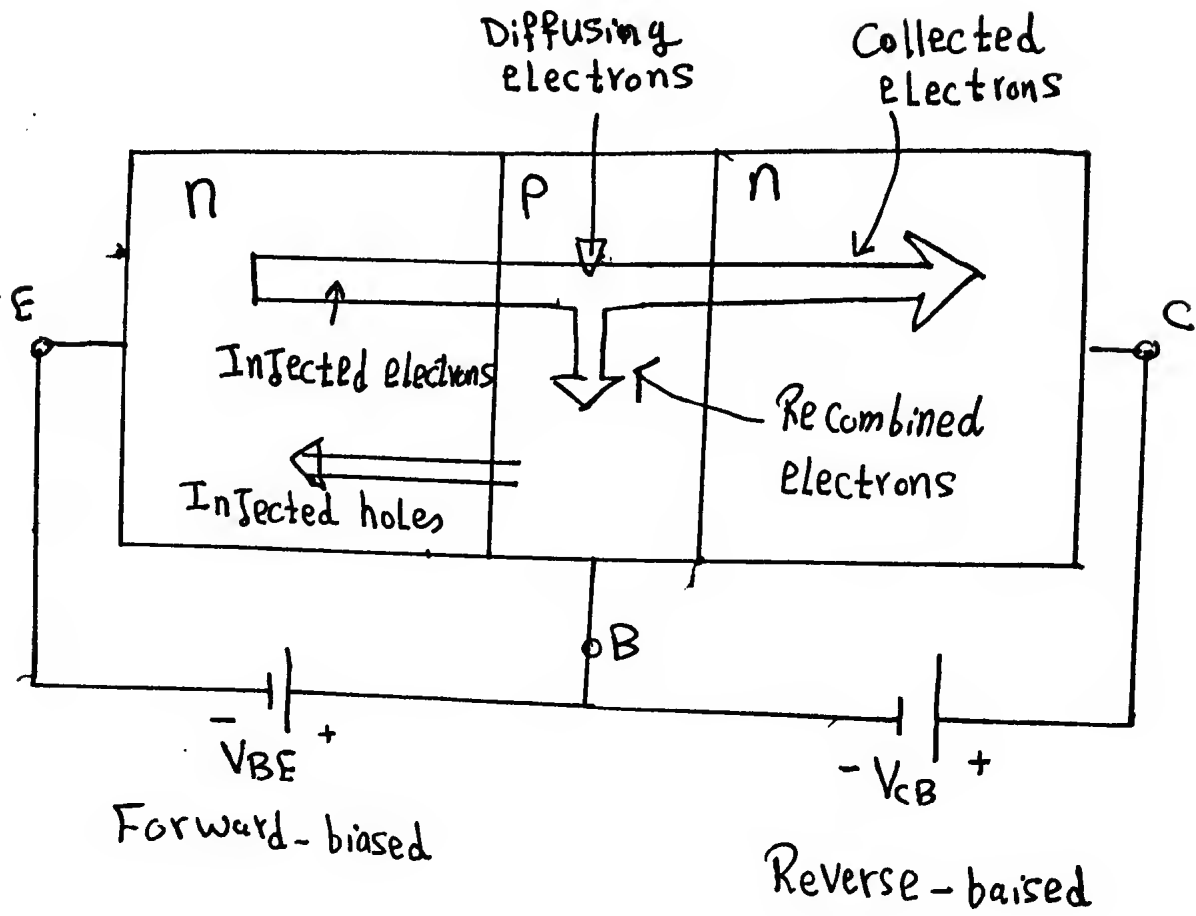 Diffusing
electrons
Collected
electrons
n
p
n
E
C
Injected electrons
Recombined
electrons
Injected holes
B
- +
VBE
- VCB +
Forward-biased
Reverse-baised